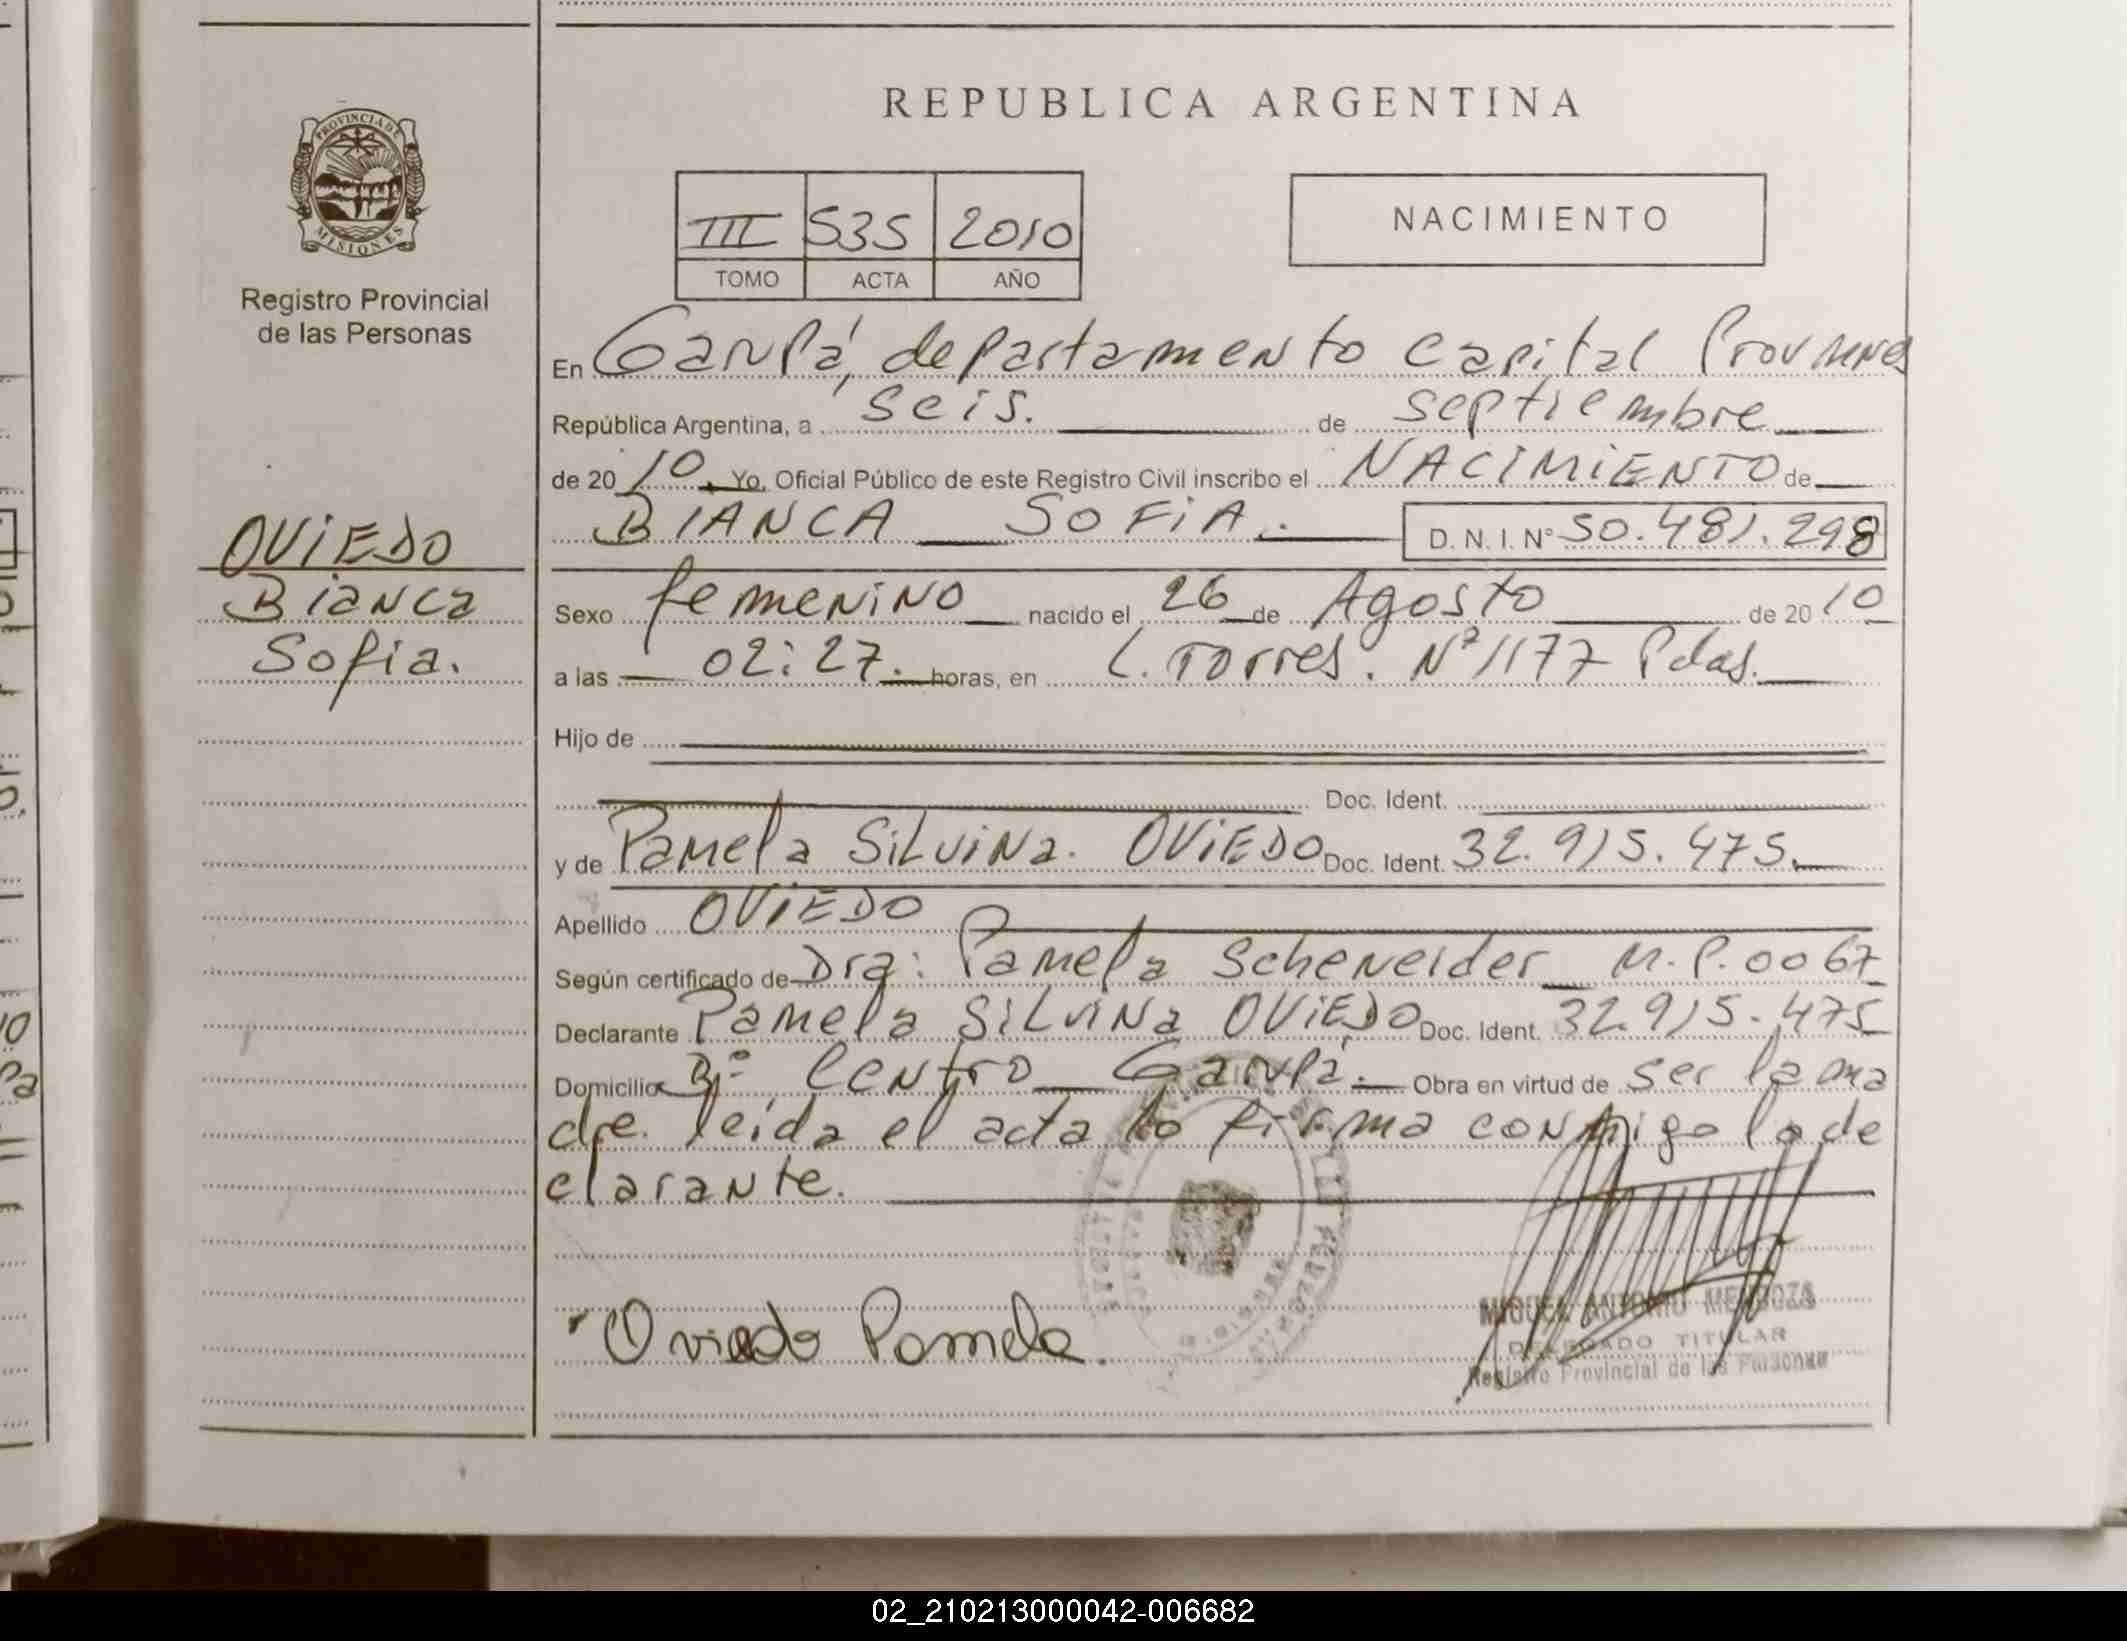 REPUBLICA ARGENTINA
PROVINCIA DE
MISIONES
Registro Provincial
de las Personas
III 535 2010
TOMO ACTA AÑO
NACIMIENTO
En Garupá, departamento Capital Prov
República Argentina, a seis. de septiembre
de 20 10. Yo, Oficial Público de este Registro Civil inscribo el NACIMIENTO de
BIANCA SOFIA. D. N. I. N° 50.481.298
OVIEDO
Bianca
Sofia.
Sexo femenino nacido el 26 de Agosto de 20 10
a las 02:27. horas, en L. Torres. Nº 1177 Pdas.
Hijo de
Doc. Ident.
y de Pamela Silvina. OVIEDO Doc. Ident. 32.915.475.
Apellido OVIEDO
Según certificado de Dra: Pamela Scheneider M.P. 0067
Declarante Pamela Silvina OVIEDO Doc. Ident. 32.915.475
Domicilio Bº Centro Garupá. Obra en virtud de ser la ma
dre. leída el acta la firma conmigo la de
clarante.
Oviedo Pamela.
MIGUEL ANTONIO MENDOZA
DELEGADO TITULAR
Registro Provincial de las Personas
02_210213000042-006682